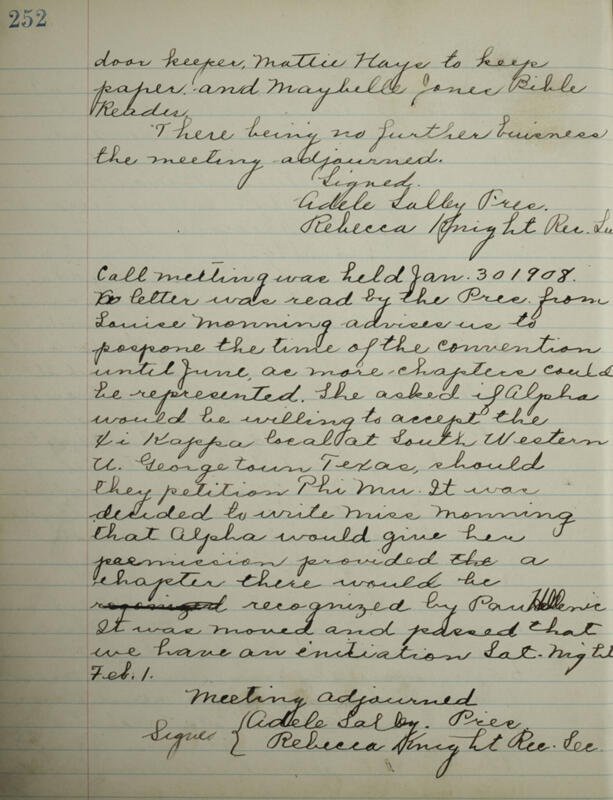 252
door keeper, Mattie Hays to keep
paper, and Maybelle Jones Bible
Reader
There being no further buisness
the meeting adjourned.
Signed.
Adele Salby Pres.
Rebecca Knight Rec. Se
Call meeting was held Jan. 30 1908.
letter was read by the Pres. from
Louise Monning advises us to
pospone the time of the convention
until June, as more chapters could
be represented. She asked if Alpha
would be willing to accept the
Xi Kappa local at South Western
U. Georgetown Texas, should
they petition Phi Mu. It was
decided to write Miss Monning
that Alpha would give her
permission provided the a
chapter there would be
recognized by Pan Hellenic
It was moved and passed that
we have an initiation Sat. Night
Feb. 1.
Meeting adjourned
Signed { Adele Salby. Pres.
Rebecca Knight Rec. Sec.